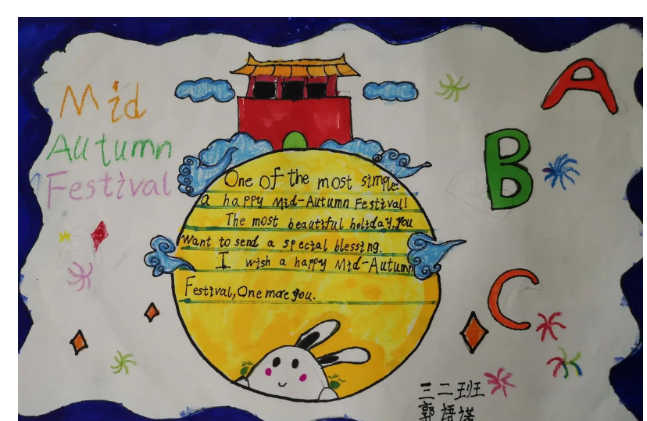 Mid
Autumn
Festival
One of the most simple
a happy Mid-Autumn Festival!
The most beautiful holiday, you
want to send a special blessing.
I wish a happy Mid-Autumn
Festival, One more you.
A
B
C
三二班
郭语诺